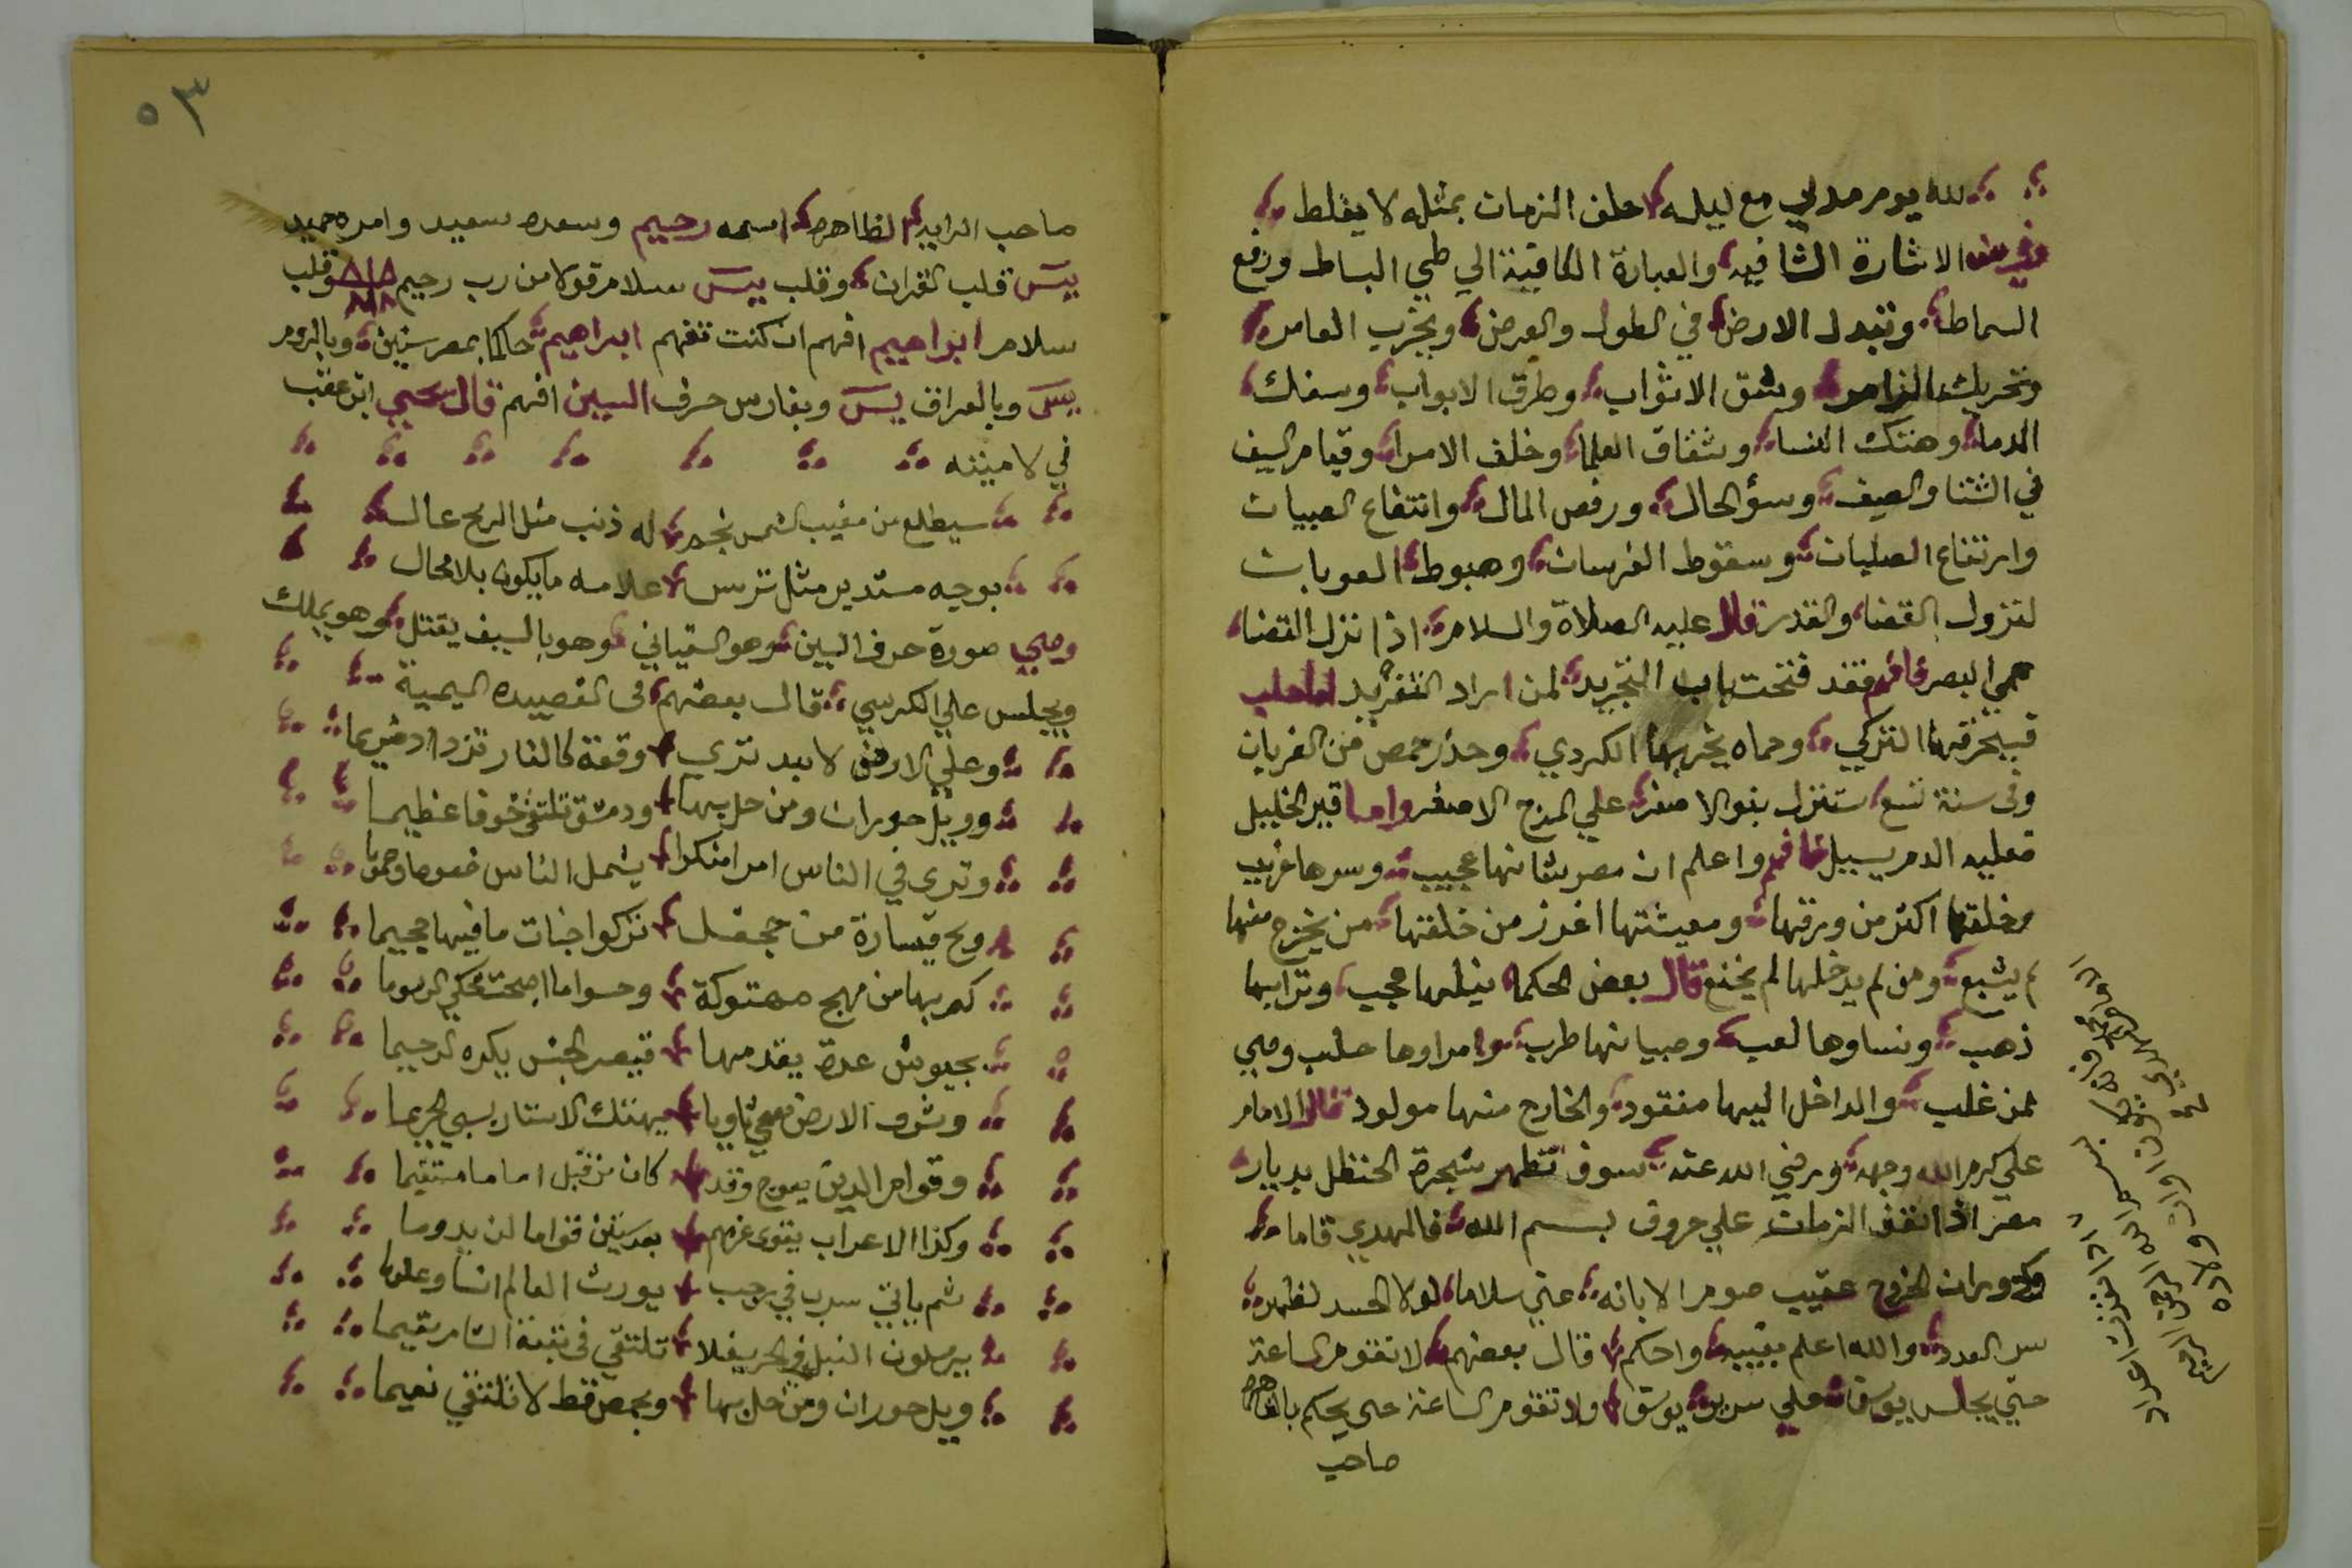 لله يوم مدلي مع ليله حلف الزمان بمثله لا يغلط
الاشارة الشافيه والعبارة الكافية الي طي البساط ورفع
السماط وتبدل الارض في الطول والعرض ويخرب العامره
وتحريك الزامر وشق الاثواب وطرق الابواب وسفك
الدما وهتك النسا وشقاق العلما وخلف الامرا وقيام السيف
في الشتا والصيف وسؤ الحال ورفص المال وانتفاع الصبيان
وارتفاع الصلبان وسقوط الفرسان وهبوط العوبات
لنزول القضا والقدر قال عليه الصلاة والسلام اذا نزل القضا
عمي البصر فافهم فقد فتحت باب التجريد لمن اراد التفريد اما حلب
فيحرقها التركي وحماه يخربها الكردي وحذر حمص من الغربان
وفى سنة تسع ستنزل بنو الاصفر علي المرج الاصفر واما قبر الخليل
فعليه الدم يسيل فافهم واعلم ان مصر شانها عجيب وسرها غريب
وخلقها اكثر من ورقها ومعيشتها اغزر من خلقتها من يخرج منها
لم يشبع ومن لم يدخلها لم يخنع قال بعض الحكما نيلها عجب وترابها
ذهب ونساوها لعب وصبيانها طرب وامراوها حلب وهي
لمن غلب والداخل اليها مفقود والخارج منها مولود قال الامام
علي كرم الله وجهه ورضي الله عنه سوف تظهر شجرة الحنظل بديار
مصر اذا نفذ الزمان علي حروف بسم الله فالمهدي قاما
ودوران الخروج عقيب صوم الا بانه عني سلاما لولا الحسد لظهر
سر العدد والله اعلم بغيبه واحكم قال بعضهم لا تقوم الساعة
حتي يجلس يوسف علي سرير يوسف ولا تقوم الساعة حتى يحكم بالقاهره
صاحب
بسم الله الرحمن الرحيم
٥٣
صاحب الرايه الظاهره اسمه رحيم وسعده سعيد وامره حميد
يس قلب القران وقلب يس سلام قولا من رب رحيم وقلب
سلام ابراهيم افهم ان كنت تفهم ابراهيم حاكما بمصر سنين وبالروم
يس وبالعراق يس وبفارس حرف السين افهم قال يحيي ابن عقب
في لاميته
سيطلع من مغيب الشمس نجم له ذنب مثل الريح عال
بوجه مستدير مثل ترس علامه ما يكون بلا محال
وهي صورة حرف السين وهو السفياني وهو بالسيف يقتل وهو يملك
ويجلس علي الكرسي قال بعضهم فى القصيده الميمية
وعلي الارض لا بد تري وقعة كالنار تزداد ضريما
وويل حوران ومن حل بها ودمشق تلتقي خوفا عظيما
وتري في الناس امرا منكرا يشمل الناس خصوصا وعموما
ويح قيسارة من جحفل تركوا جنات ما فيها جحيما
كم بها من مهج مهتوكة وحسواما اصبحت تحكي الرسوما
بجيوش عدة يقدمها قيصر الجنس يكره الرحيما
وشرف الارض معي ثاويا يهتك الاستار يسبي الحريما
وقوام الدين يعوج وقد كان من قبل اماما مستقيما
وكذا الاعراب يقوي عزهم بعد سنين قواما لن يدوما
ثم ياتي سرب في رجب يورث العالم انسا وعلوما
يرملون النبل في البحر يغلا تلتقي فى تقبة الشام يقيما
ويل حوران ومن حل بها وبحمص قط لا تلتقي نعيما